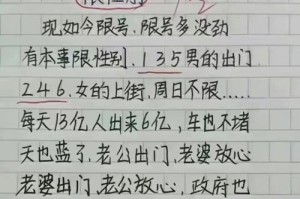 现如今限号,限号多没劲
有本事限性别,135男的出门
246.女的上街,周日不限.....
每天13亿人出来6亿,车也不堵
天也蓝了.老公出门,老婆放心
老婆出门,老公放心,政府也